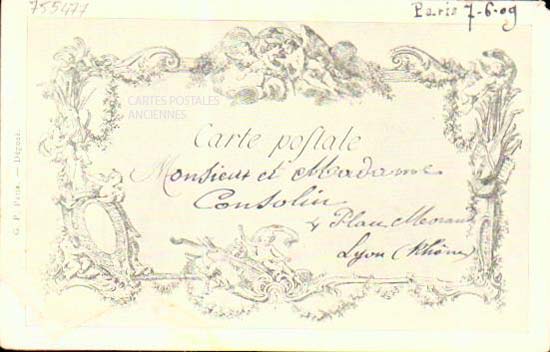 755477
Paris 7-6-09
CARTES POSTALES
ANCIENNES
Carte postale
Monsieur et Madame
Consolin
4 Place Morand
Lyon (Rhône)
G. P. Paris. — Déposé.